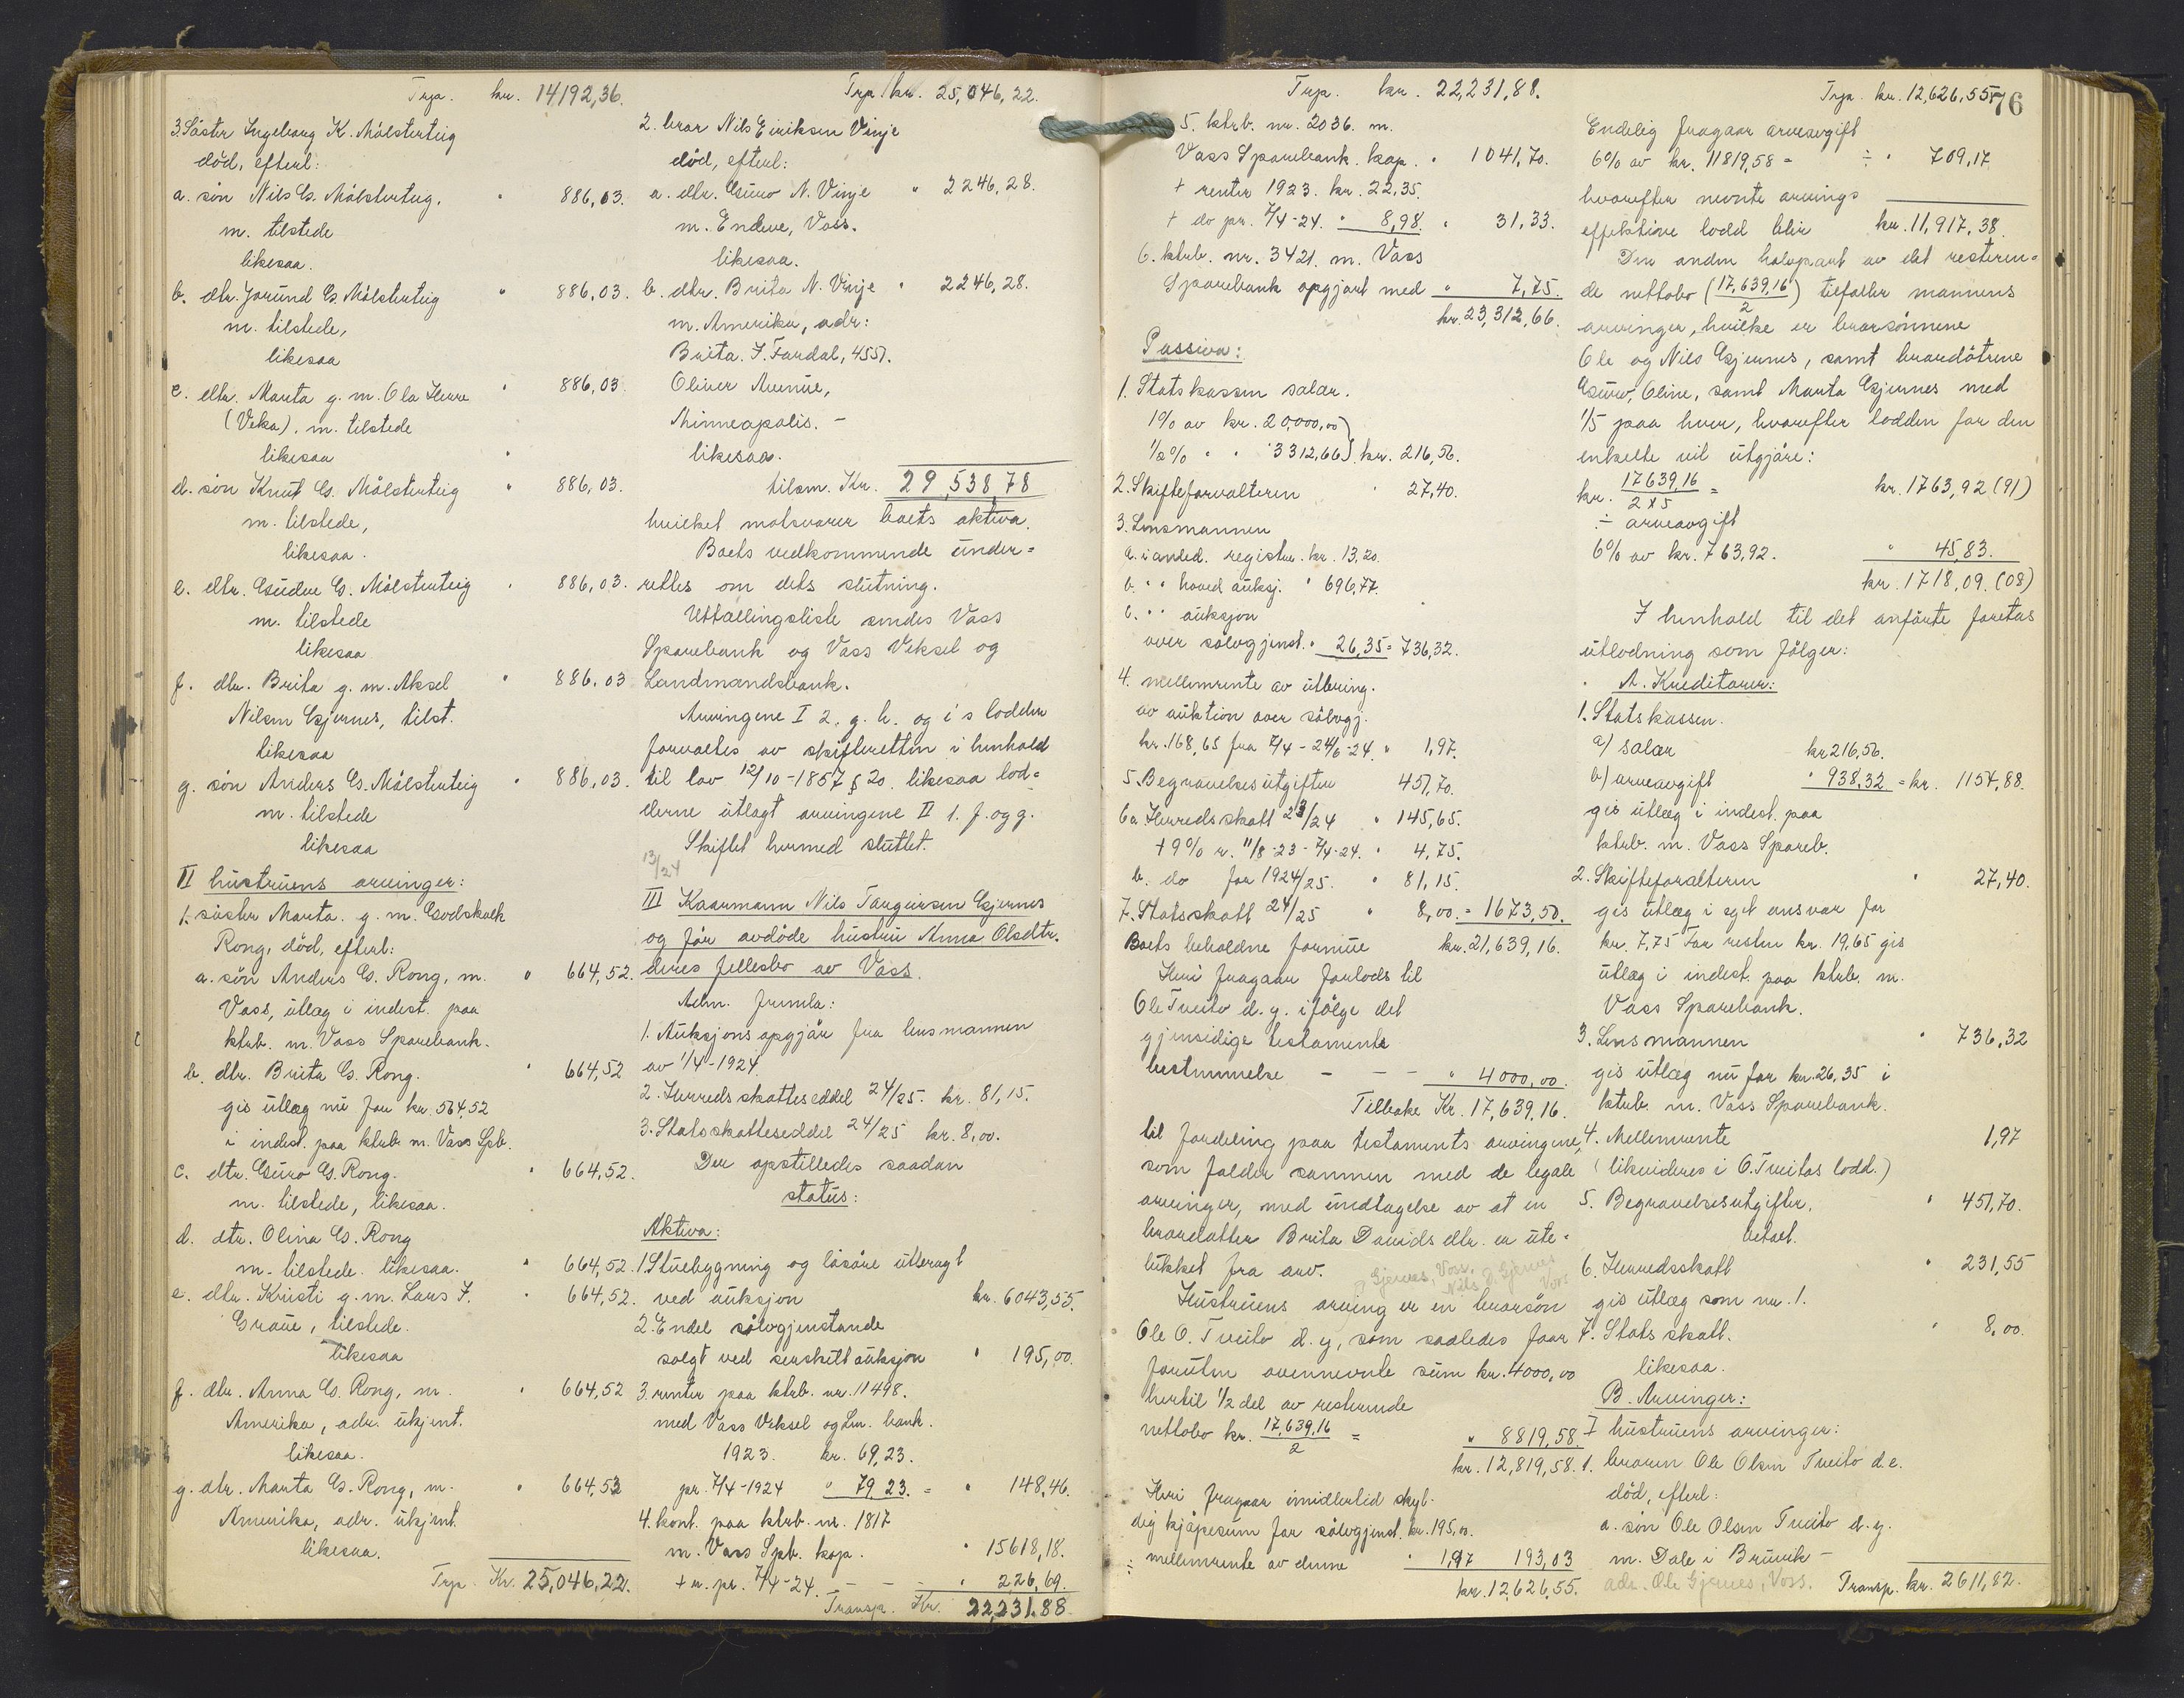 Trp. kr. 14192,36.
3. Søster Ingeborg K. Mölsterteig
död, efterl:
a. sön Nils G. Mölsterteig. " 886,03.
m. tilstede
likesaa.
b. dtr. Jorund G. Mölsterteig " 886,03.
m. tilstede,
likesaa
c. dtr. Marta g. m. Ola Herre " 886,03
(Veka). m. tilstede
likesaa
d. sön Knut G. Mölsterteig " 886,03.
m. tilstede,
likesaa.
e. dtr. Gudve G. Mölsterteig " 886,03.
m. tilstede
likesaa
f. dtr. Brita g. m. Aksel " 886.03
Nilsen Gjernes, tilst.
likesaa
g. sön Anders G. Mölsterteig " 886,03.
m. tilstede
likesaa
II hustruens arvinger:
1. söster Marta. g. m. Godskalk
Rong, död, efterl:
a. sön Anders G. Rong, m. " 664,52.
Vass, utlæg i indest. paa
ktrb. m. Vass Sparebank.
b. dtr. Brita G. Rong. " 664,52
gis utlæg nu for kr. 564,52
i indest. paa ktrb. m. Vass Spb.
c. dtr. Guro G. Rong. " 664,52.
m. tilstede, likesaa.
d. dtr. Olina G. Rong
m. tilstede. likesaa. " 664,52.
e. dtr. Kristi g. m. Lars J. " 664,52.
Graue, tilstede.
likesaa
f. dtr. Anna G. Rong, m. " 664,52
Amerika, adr. ukjent.
likesaa.
g. dtr. Marta G. Rong, m. " 664,53
Amerika, adr. ukjent.
likesaa.
Trp. Kr. 25,046,22.
Trp. kr. 25,046,22.
2. bror Nils Eiriksen Vinje
död, efterl:
a. dtr. Guro N. Vinje " 2246,28.
m. Endeve, Voss.
likesaa.
b. dtr. Brita N. Vinje " 2246,28.
m. Amerika, adr:
Brita. J. Fardal, 4551.
Oliver Avenue,
Minneapolis. -
likesaa.
tilsm. Kr. 29,538,78
hvilket motsvarer boets aktiva.
Boets vedkommende under=
rettes om dets slutning.
Utbetalingsliste sendes Vass
Sparebank og Vass Veksel og
Landmandsbank.
Arvingene I 2, g. h. og i's lodder
forvaltes av skifteretten i henhold
til lov 12/10-1857 § 20. likesaa lod=
derne utlagt arvingene II 1. f. og g.
Skiftet hermed sluttet.
13/24
III Kaarmann Nils Torgersen Gjernes
og för avdöde hustru Anna Olsdtr.
deres fellesbo av Vass.
Adm. fremla:
1. Auksjonsopgjör fra lensmannen
av 1/4-1924.
2. Herredsskatteseddel 24/25. kr. 81,15.
3. Statsskatteseddel 24/25 kr. 8,00.
Der opstilledes saadan
status:
Aktiva:
1. Stuebygning og lösöre utbragt
ved auksjon kr. 6043,55.
2. Endel sölvgjenstande
solgt ved serskilt auksjon " 195,00.
3. renter paa ktrb. nr. 11498.
med Vass Veksel og Lm. bank.
1923. kr. 69,23.
pr. 7/4-1924 " 79,23. = " 148,46.
4. kont. paa ktrb. nr. 1817
m. Vass Spb. kap. " 15618,18.
+ r. pr. 7/4-24. - - - " 226,69.
Transp. Kr. 22,231.88
Trp. kr. 22,231,88.
5. ktrb. nr. 2036. m.
Vass Sparebank. kap. " 1041,70.
+ renter 1923. kr. 22,35.
+ do pr. 7/4-24. " 8,98. " 31,33.
6. ktrb. nr. 3421. m. Vass
Sparebank opgjort med " 7,75.
kr. 23,312,66.
Passiva:
1. Statskassen salær.
1% av kr. 20,000,00
1/2% " " 3312,66} kr. 216,56.
2. Skifteforvalteren " 27,40.
3. Lensmannen
a. i anled. registr. kr. 13,20.
b. " " hoved auksj. " 696,77.
c. " " auksjon
over sölvgjenst. " 26,35 = 736,32.
4. mellemrente av utbring.
av auktion over sölvgj.
kr. 168,65 fra 7/4-24/6-24. " 1,97.
5. Begravelsesutgifter 451,70.
6a. Herredsskatt 23/24 " 145,65.
+ 9% r. 11/8-23-7/4-24. " 4,75.
b. do for 1924/25. " 81,15.
7. Statsskatt 24/25 " 8,00. = 1673,50.
Boets beholdne formue kr. 21,639,16.
Heri fragaar forlods til
Ole Tveito d. y. ifölge det
gjensidige testamente
bestemmelse - - - " 4000,00.
Tilbake Kr. 17,639,16.
til fordeling paa testaments arvingene,
som falder sammen med de legale
arvinger, med undtagelse av at en
brordatter Brita Davids dtr. er ute=
lukket fra arv.
Gjernes, Voss.
Nils D. Gjernes
Voss
Hustruens arving er en brorsön
Ole O. Tveito d. y, som saaledes faar
foruten ovennevnte sum kr. 4000,00
hertil 1/2 del av resterende
nettobo kr. 17,639,16/2 = " 8819,58.
kr. 12,819,58.
Heri fragaar imidlertid skyl-
dig kjöpesum for sölvgjenst. kr. 195,00.
÷ mellemrente av denne " 1,97 193,03
kr. 12,626,55.
Trp. kr. 12,626,55.
76
Endelig fragaar arveavgift
6% av kr. 11819,58 = ÷ " 709,17
hvorefter nevnte arvings
effektive lodd blir kr. 11,917,38.
Den anden halvpart av det resteren=
de nettobo (17,639,16/2) tilfaller mannens
arvinger, hvilke er brorsönnene
Ole og Nils Gjernes, samt brordötrene
Guro, Oline, samt Marta Gjernes med
1/5 paa hver, hvorefter lodden for den
enkelte vil utgjöre:
kr. 17639,16/2x5 = kr. 1763,92 (91)
÷ arveavgift
6% av kr. 763,92. " 45,83.
kr. 1718,09. (08)
I henhold til det anförte foretas
utlodning som fölger:
A. Kreditorer:
1. Statskassen.
a) salær kr. 216,56.
b) arveavgift " 938,32 = kr. 1154,88.
gis utlæg i indest. paa
ktrb. m. Vass Spareb.
2. Skifteforvalteren " 27,40.
gis utlæg i eget ansvar for
kr. 7,75 For resten kr. 19,65 gis
utlæg i indest. paa ktrb. m.
Vass Sparebank.
3. Lensmannen " 736,32
gis utlæg nu for kr. 26,35 i
ktrb. m. Vass Sparebank.
4. Mellemrente 1,97
(likvideres i O. Tveitos lodd.)
5. Begravelsesutgifter. " 451,70.
betalt.
6. Herredsskatt " 231,55
gis utlæg som nr. 1.
7. Stats skatt. " 8,00.
likesaa.
B. Arvinger:
I hustruens arvinger:
1. broren Ole Olsen Tveito d. e.
död, efterl:
a. sön Ole Olsen Tveito d. y.
m. Dale i Bruvik -
adr. Ole Gjernes, Voss.
Transp. kr. 2611,82.